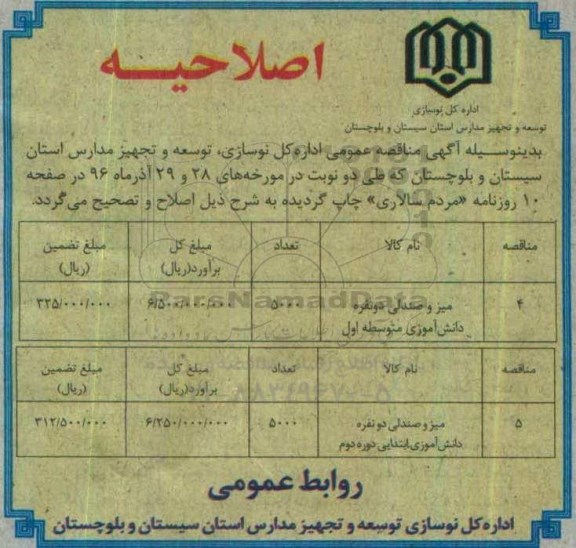 اصلاحیه
اداره کل نوسازی
توسعه و تجهیز مدارس استان سیستان و بلوچستان
بدینوسیله آگهی مناقصه عمومی اداره‌کل نوسازی، توسعه و تجهیز مدارس استان
سیستان و بلوچستان که طی دو نوبت در مورخه‌های ۲۸ و ۲۹ آذرماه ۹۶ در صفحه
۱۰ روزنامه «مردم سالاری» چاپ گردیده به شرح ذیل اصلاح و تصحیح می‌گردد.
مناقصه نام کالا تعداد مبلغ کل مبلغ تضمین
برآورد(ریال) (ریال)
۴ میز و صندلی دونفره ۵۰۰۰ ۶/۵۰۰/۰۰۰/۰۰۰ ۳۲۵/۰۰۰/۰۰۰
دانش‌آموزی متوسطه اول
ParsNamadData
مناقصه نام کالا تعداد مبلغ کل مبلغ تضمین
برآورد(ریال) (ریال)
۵ میز و صندلی دو نفره ۵۰۰۰ ۶/۲۵۰/۰۰۰/۰۰۰ ۳۱۲/۵۰۰/۰۰۰
دانش‌آموزی ابتدایی دوره دوم
روابط عمومی
اداره کل نوسازی توسعه و تجهیز مدارس استان سیستان و بلوچستان